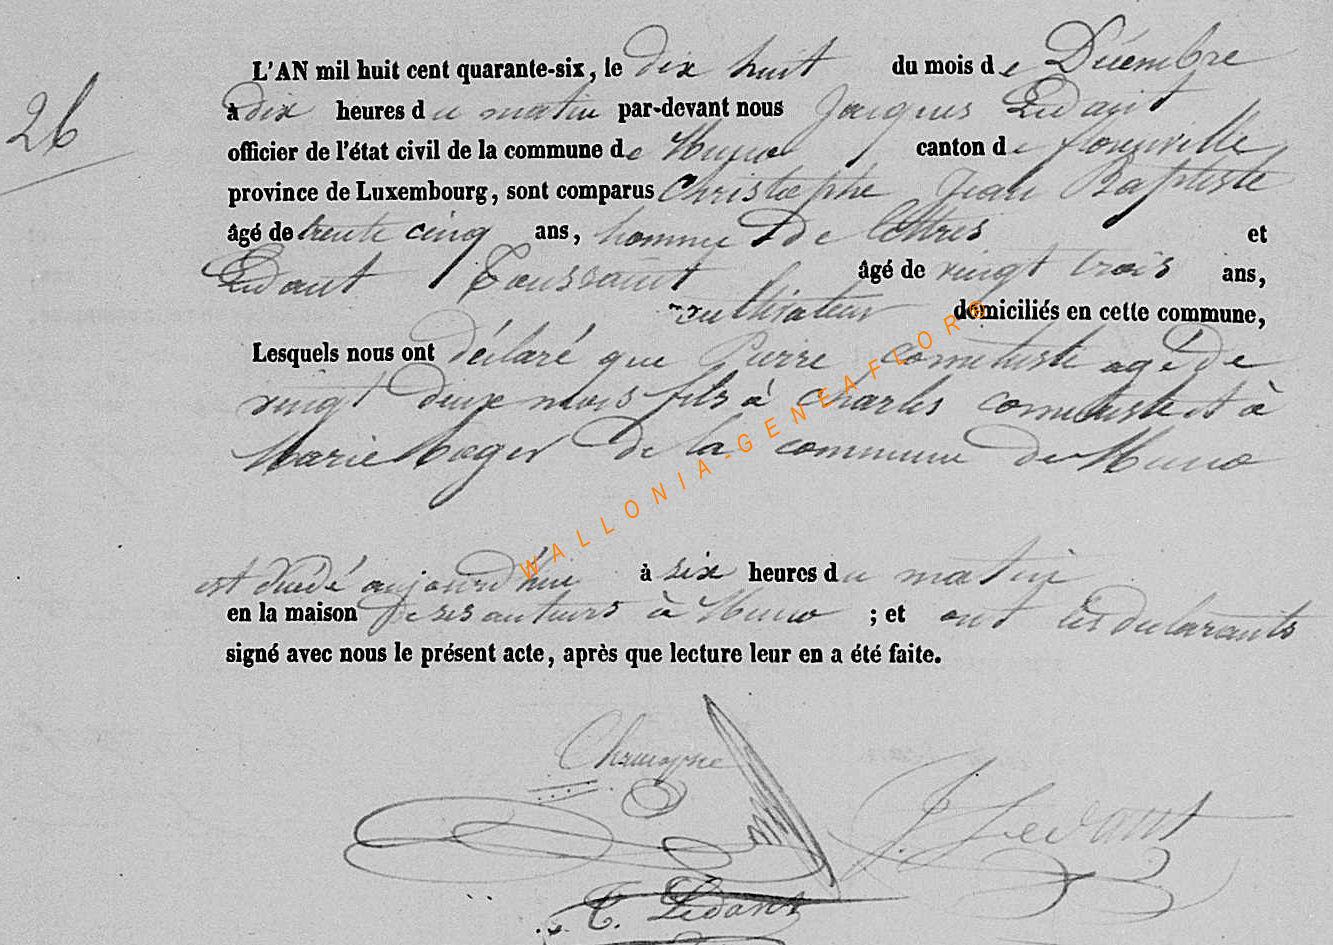 26
L'AN mil huit cent quarante-six, le dix huit du mois de Décembre
à dix heures du matin par-devant nous Jacques Lédant
officier de l'état civil de la commune de Muno canton de florenville
province de Luxembourg, sont comparus Christophe Jean Baptiste
âgé de trente cinq ans, homme de lettres et
Lédant Toussaint âgé de vingt trois ans,
cultivateur domiciliés en cette commune,
Lesquels nous ont déclaré que Pierre agé de
vingt deux mois fils à Charles et à
Marie de la commune de Muno
est décédé aujourd'hui à six heures du matin
en la maison de ses auteurs à Muno ; et ont les déclarants
signé avec nous le présent acte, après que lecture leur en a été faite.
J. Ledant
T. Lédant
WALLONIA-GENEAFLORE